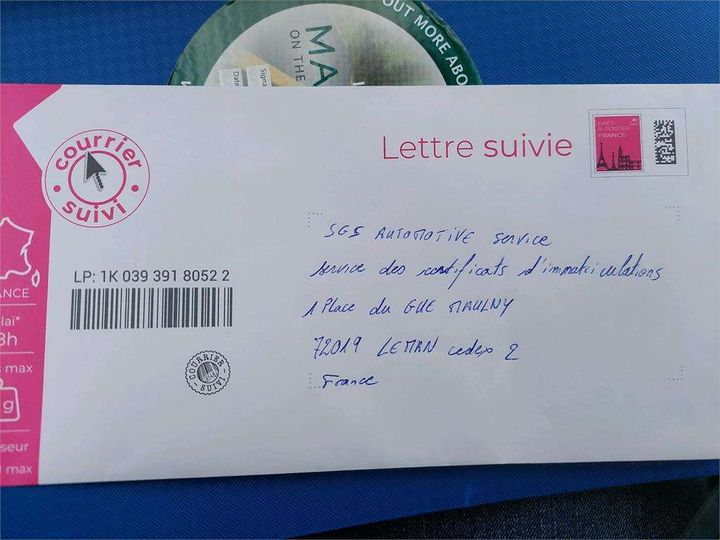 OUT MORE ABO
MA
ON THE
Signa
Date
courrier
suivi
Lettre suivie
PRÊT-
À-POSTER
FRANCE
SGS AUTOMOTIVE Service
service des certificats d'immatriculations
1 Place du GUE MAULNY
72019 LEMAN cedex 2
France
LP: 1K 039 391 8052 2
COURRIER
SUIVI
ANCE
lai*
8h
max
g
sseur
max